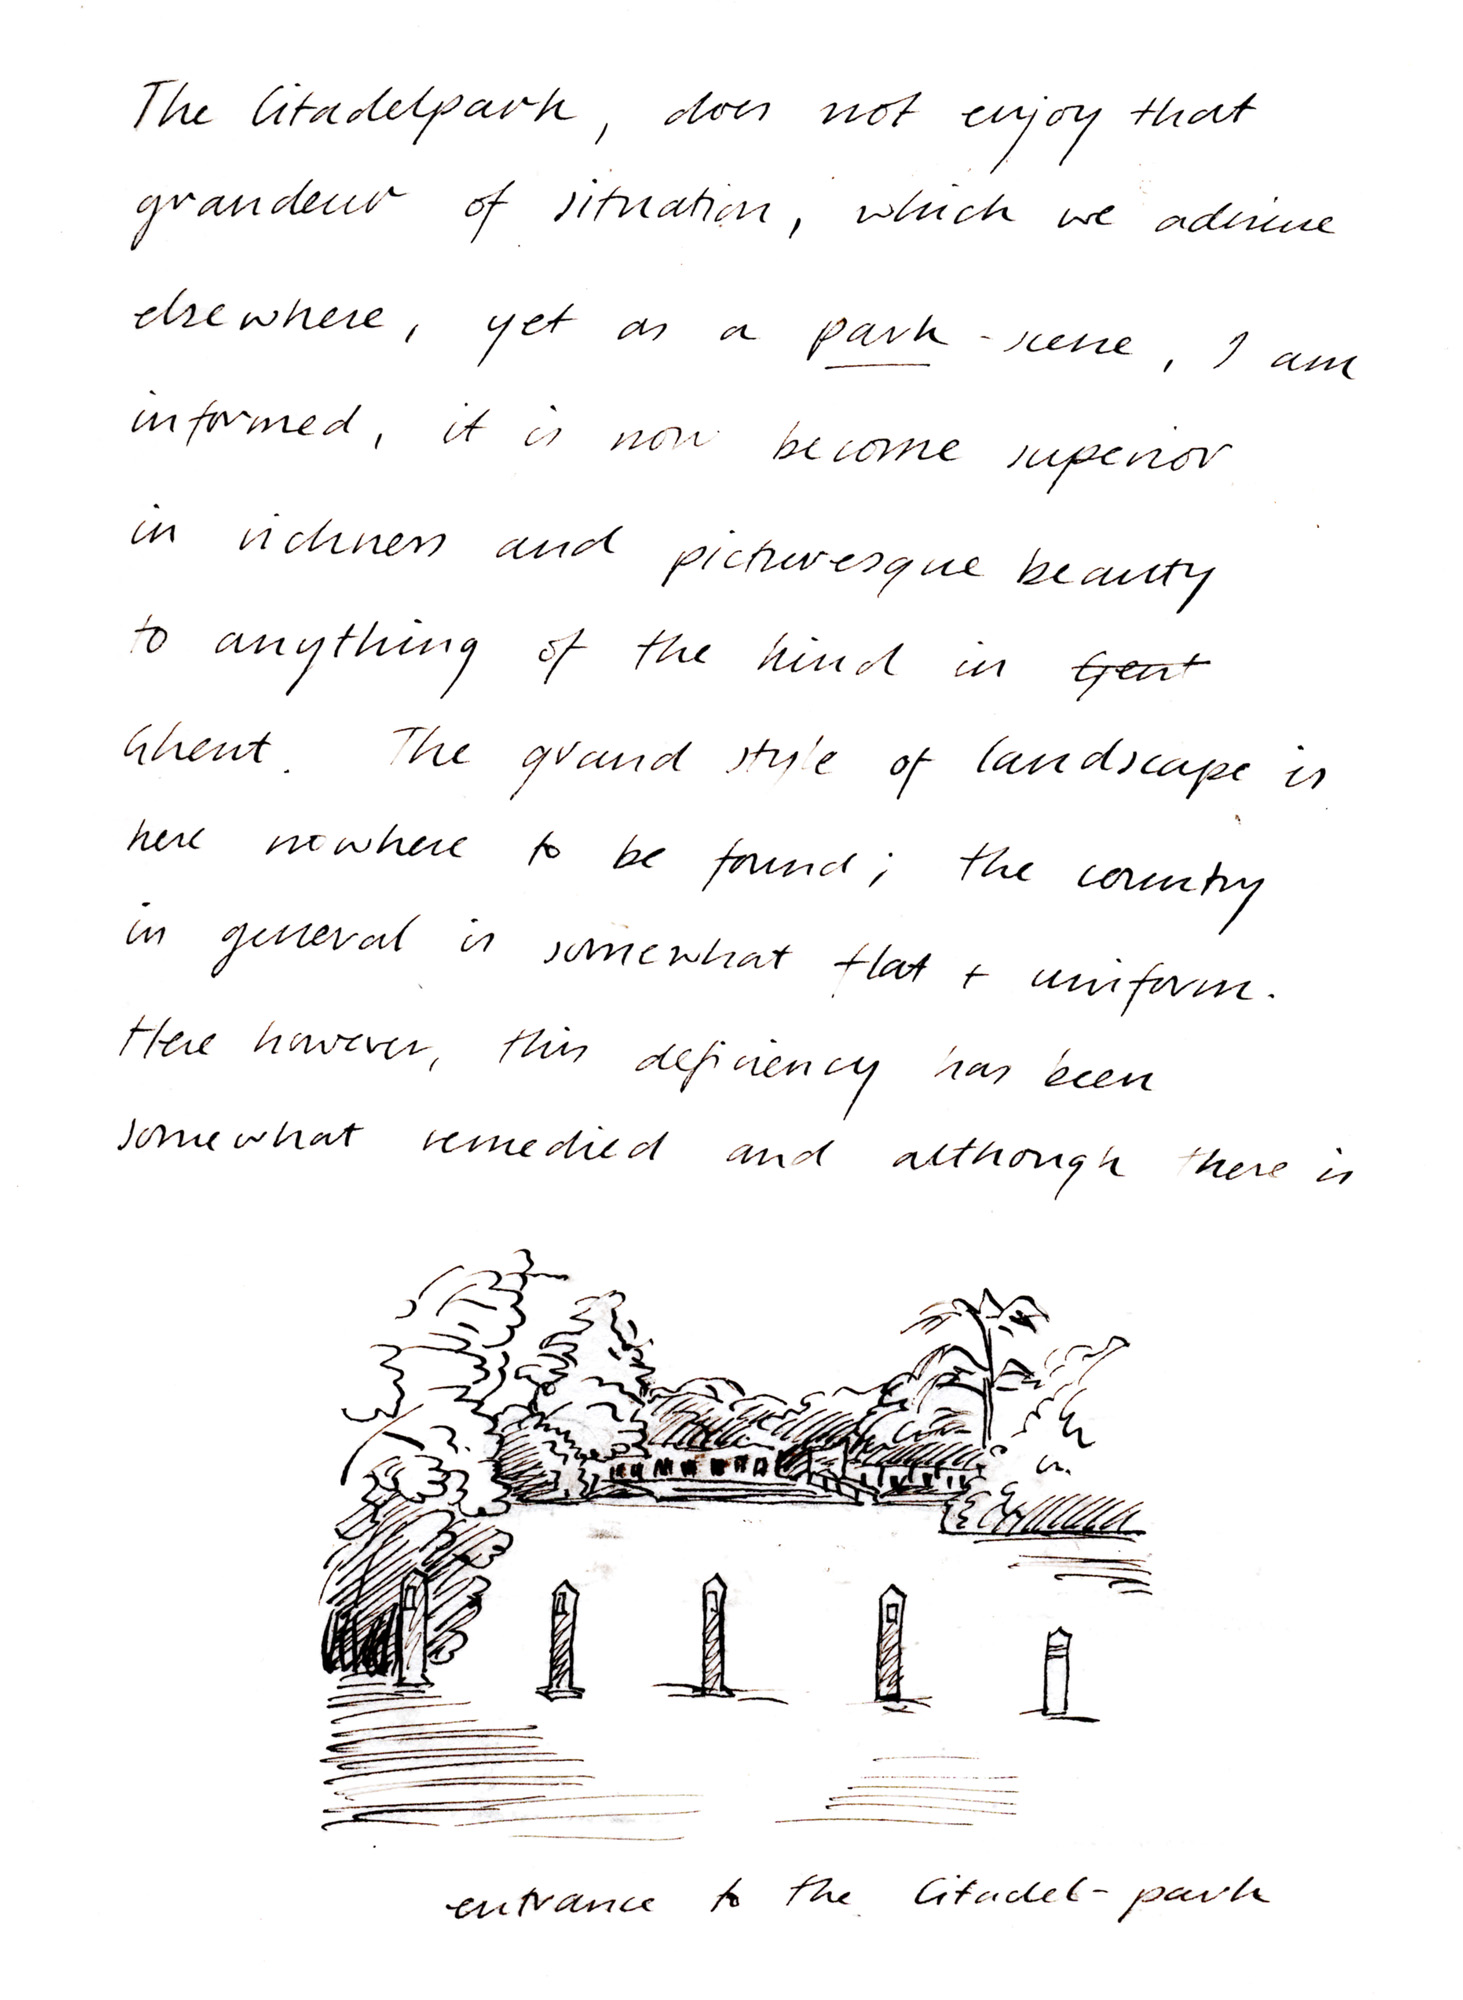 The Citadelpark, does not enjoy that
grandeur of situation, which we admire
elsewhere, yet as a park-scene, I am
informed, it is now become superior
in richness and picturesque beauty
to anything of the kind in Gent
Ghent. The grand style of landscape is
here nowhere to be found; the country
in general is somewhat flat + uniform.
Here however, this deficiency has been
somewhat remedied and although there is
entrance to the Citadel-park